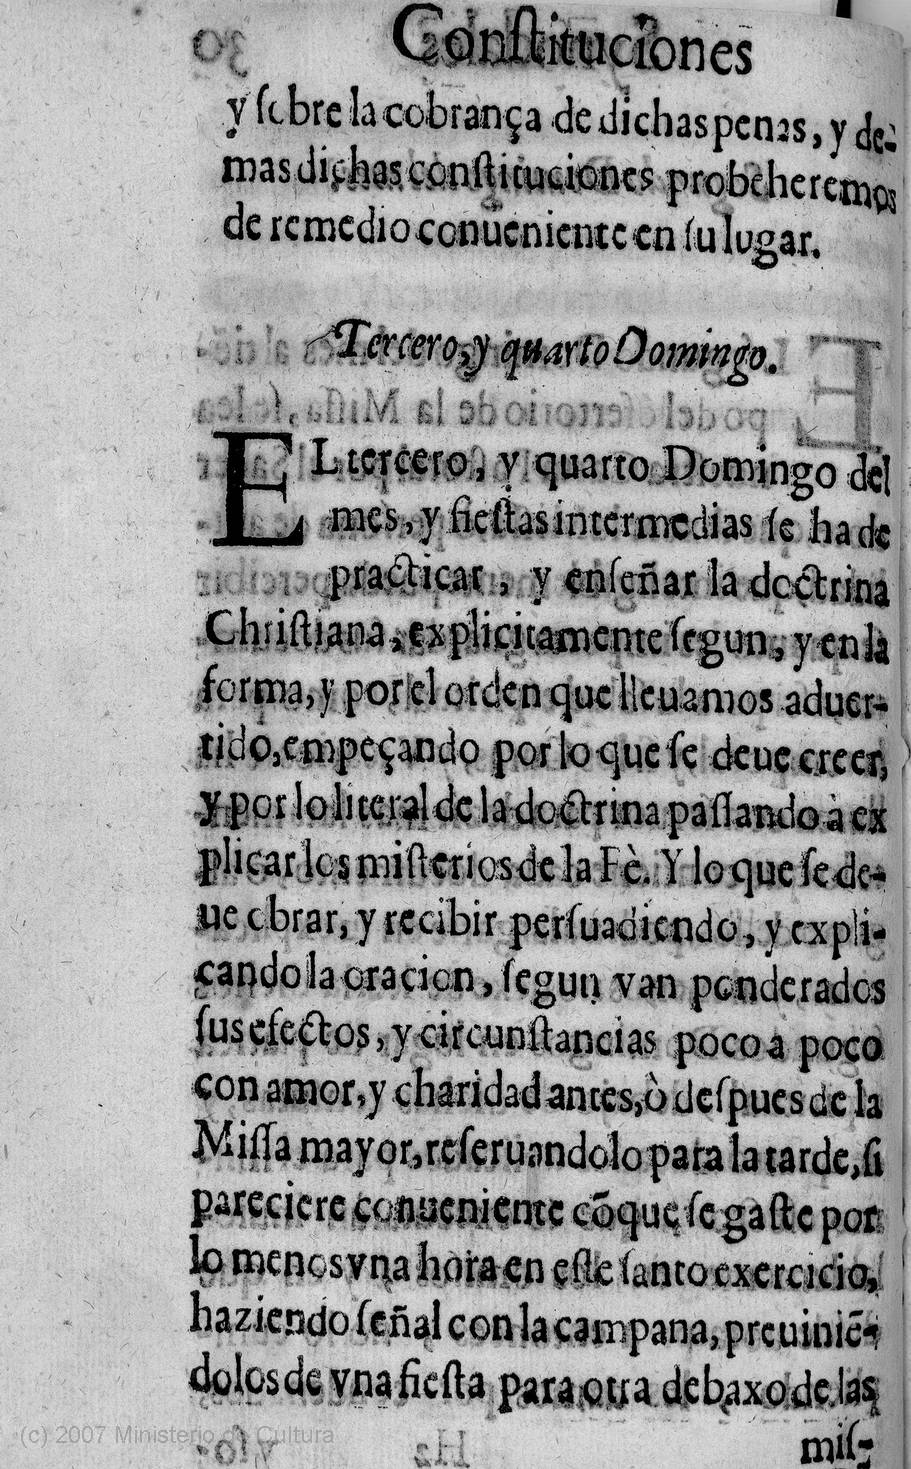 Conſtituciones
y ſobre la cobrança de dichas penas, y de-
mas dichas conſtituciones probeheremos
de remedio conueniente en ſu lugar.
Tercero, y quarto Domingo.
EL tercero, y quarto Domingo del
mes, y fieſtas intermedias ſe ha de
practicar, y enſeñar la doctrina
Chriſtiana, explicitamente ſegun, y en la
forma, y por el orden que lleuamos aduer-
tido, empeçando por lo que ſe deue creer,
y por lo literal de la doctrina paſſando à ex
plicar los miſterios de la Fè. Y lo que ſe de-
ue obrar, y recibir perſuadiendo, y expli-
cando la oracion, ſegun van ponderados
ſus efectos, y circunſtancias poco a poco
con amor, y charidad antes, ò deſpues de la
Miſſa mayor, reſeruandolo para la tarde, ſi
pareciere conueniente cõ que ſe gaſte por
lo menos vna hora en eſte ſanto exercicio,
haziendo ſeñal con la campana, preuiniẽ-
dolos de vna fieſta para otra debaxo de las
miſ-
(c) 2007 Ministerio de Cultura